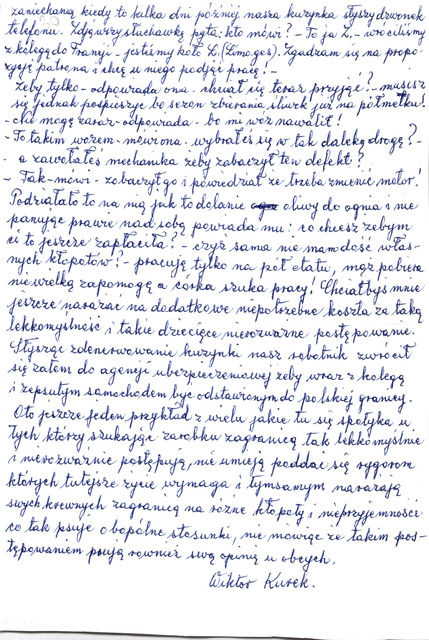 zaniechaną kiedy to kilka dni później nasza kuzynka słyszy dzwonek
telefonu. Zdjąwszy słuchawkę pyta: kto mówi? - To ja Z. - wróciliśmy
z kolegą do Francji - jesteśmy koło L. (Limoges). Zgadzam się na propo-
zycję patrona i chcę u niego podjąć pracę! -
Żeby tylko - odpowiada ona - chciał cię teraz przyjąć? - musisz
się jednak pospieszyć bo sezon zbierania śliwek już na półmetku!
- nie mogę zaraz - odpowiada - bo mi wóz nawalił!
- To takim wozem - mówi ona - wybrałeś się w tak daleką drogę? -
- a zawołałeś mechanika żeby zobaczył ten defekt?
- Tak - mówi - zobaczył go i powiedział że trzeba zmienić motor!
Podziałało to na nią jak to dolanie oliwy do ognia i nie
panując prawie nad sobą powiada mu: co chcesz żebym
ci to jeszcze zapłaciła? - czyż sama nie mam dość włas-
nych kłopotów? - pracuję tylko na pół etatu, mąż pobiera
niewielką zapomogę a córka szuka pracy! Chciałbyś mnie
jeszcze narażać na dodatkowe niepotrzebne koszta za taką
lekkomyślność i takie dziecięce nierozważne postępowanie.
Słysząc zdenerwowanie kuzynki nasz robotnik zwrócił
się zatem do agencji ubezpieczeniowej żeby wraz z kolegą
i zepsutym samochodem być odstawionym do polskiej granicy.
Oto jeszcze jeden przykład z wielu jakie tu się spotyka u
tych którzy szukając zarobku zagranicą tak lekkomyślnie
i nierozważnie postępują, nie umieją poddać się rygorom
których tutejsze życie wymaga i tymsamym narażają
swych krewnych zagranicą na różne kłopoty i nieprzyjemności
co tak psuje obopólne stosunki, nie mówiąc że takim pos-
tępowaniem psują również swą opinię u obcych.
Wiktor Kurek.